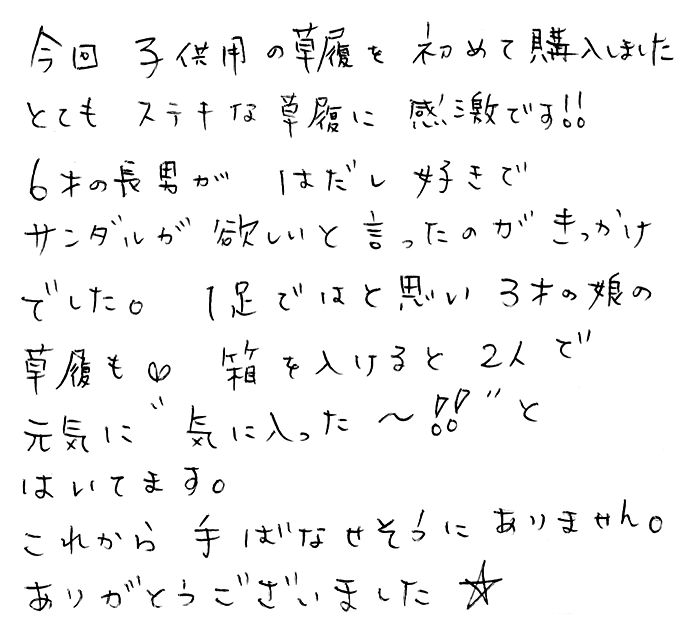 今回 子供用の草履を 初めて購入しました
とても ステキな草履に 感激です!!
6才の長男が はだし好きで
サンダルが欲しいと言ったのがきっかけ
でした。 1足ではと思い 3才の娘の
草履も♡ 箱を入けると 2人で
元気に"気に入った〜!!"と
はいてます。
これから 手ばなせそうにありません。
ありがとうございました☆